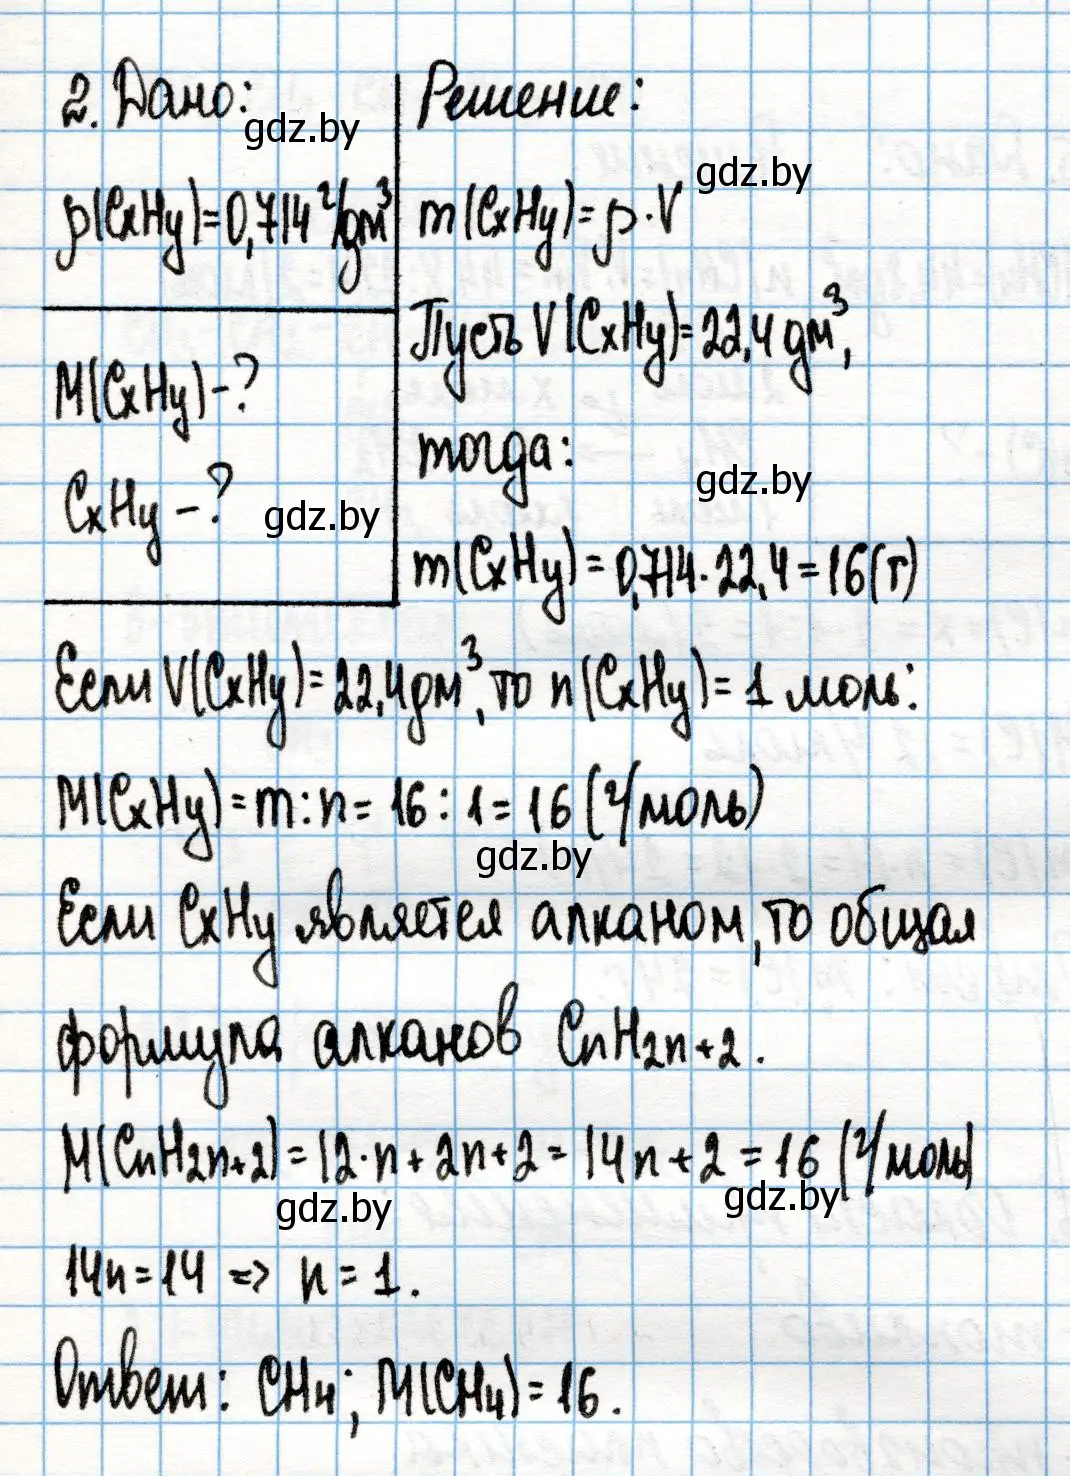 2. Дано:
gdz.by
ρ(CxHy)=0,714 г/дм³
M(CxHy)-?
CxHy -?
gdz.by
Решение:
gdz.by
m(CxHy)=ρ·V
Пусть V(CxHy)=22,4 дм³,
тогда:
gdz.by
m(CxHy)=0,714·22,4=16(г)
Если V(CxHy)=22,4дм³, то n(CxHy)=1 моль:
M(CxHy)=m:n=16:1=16 (г/моль)
gdz.by
Если CxHy является алканом, то общая
формула алканов CnH2n+2.
M(CnH2n+2)=12·n+2n+2=14n+2=16 (г/моль)
gdz.by
gdz.by
14n=14 => n=1.
Ответ: CH4; M(CH4)=16.